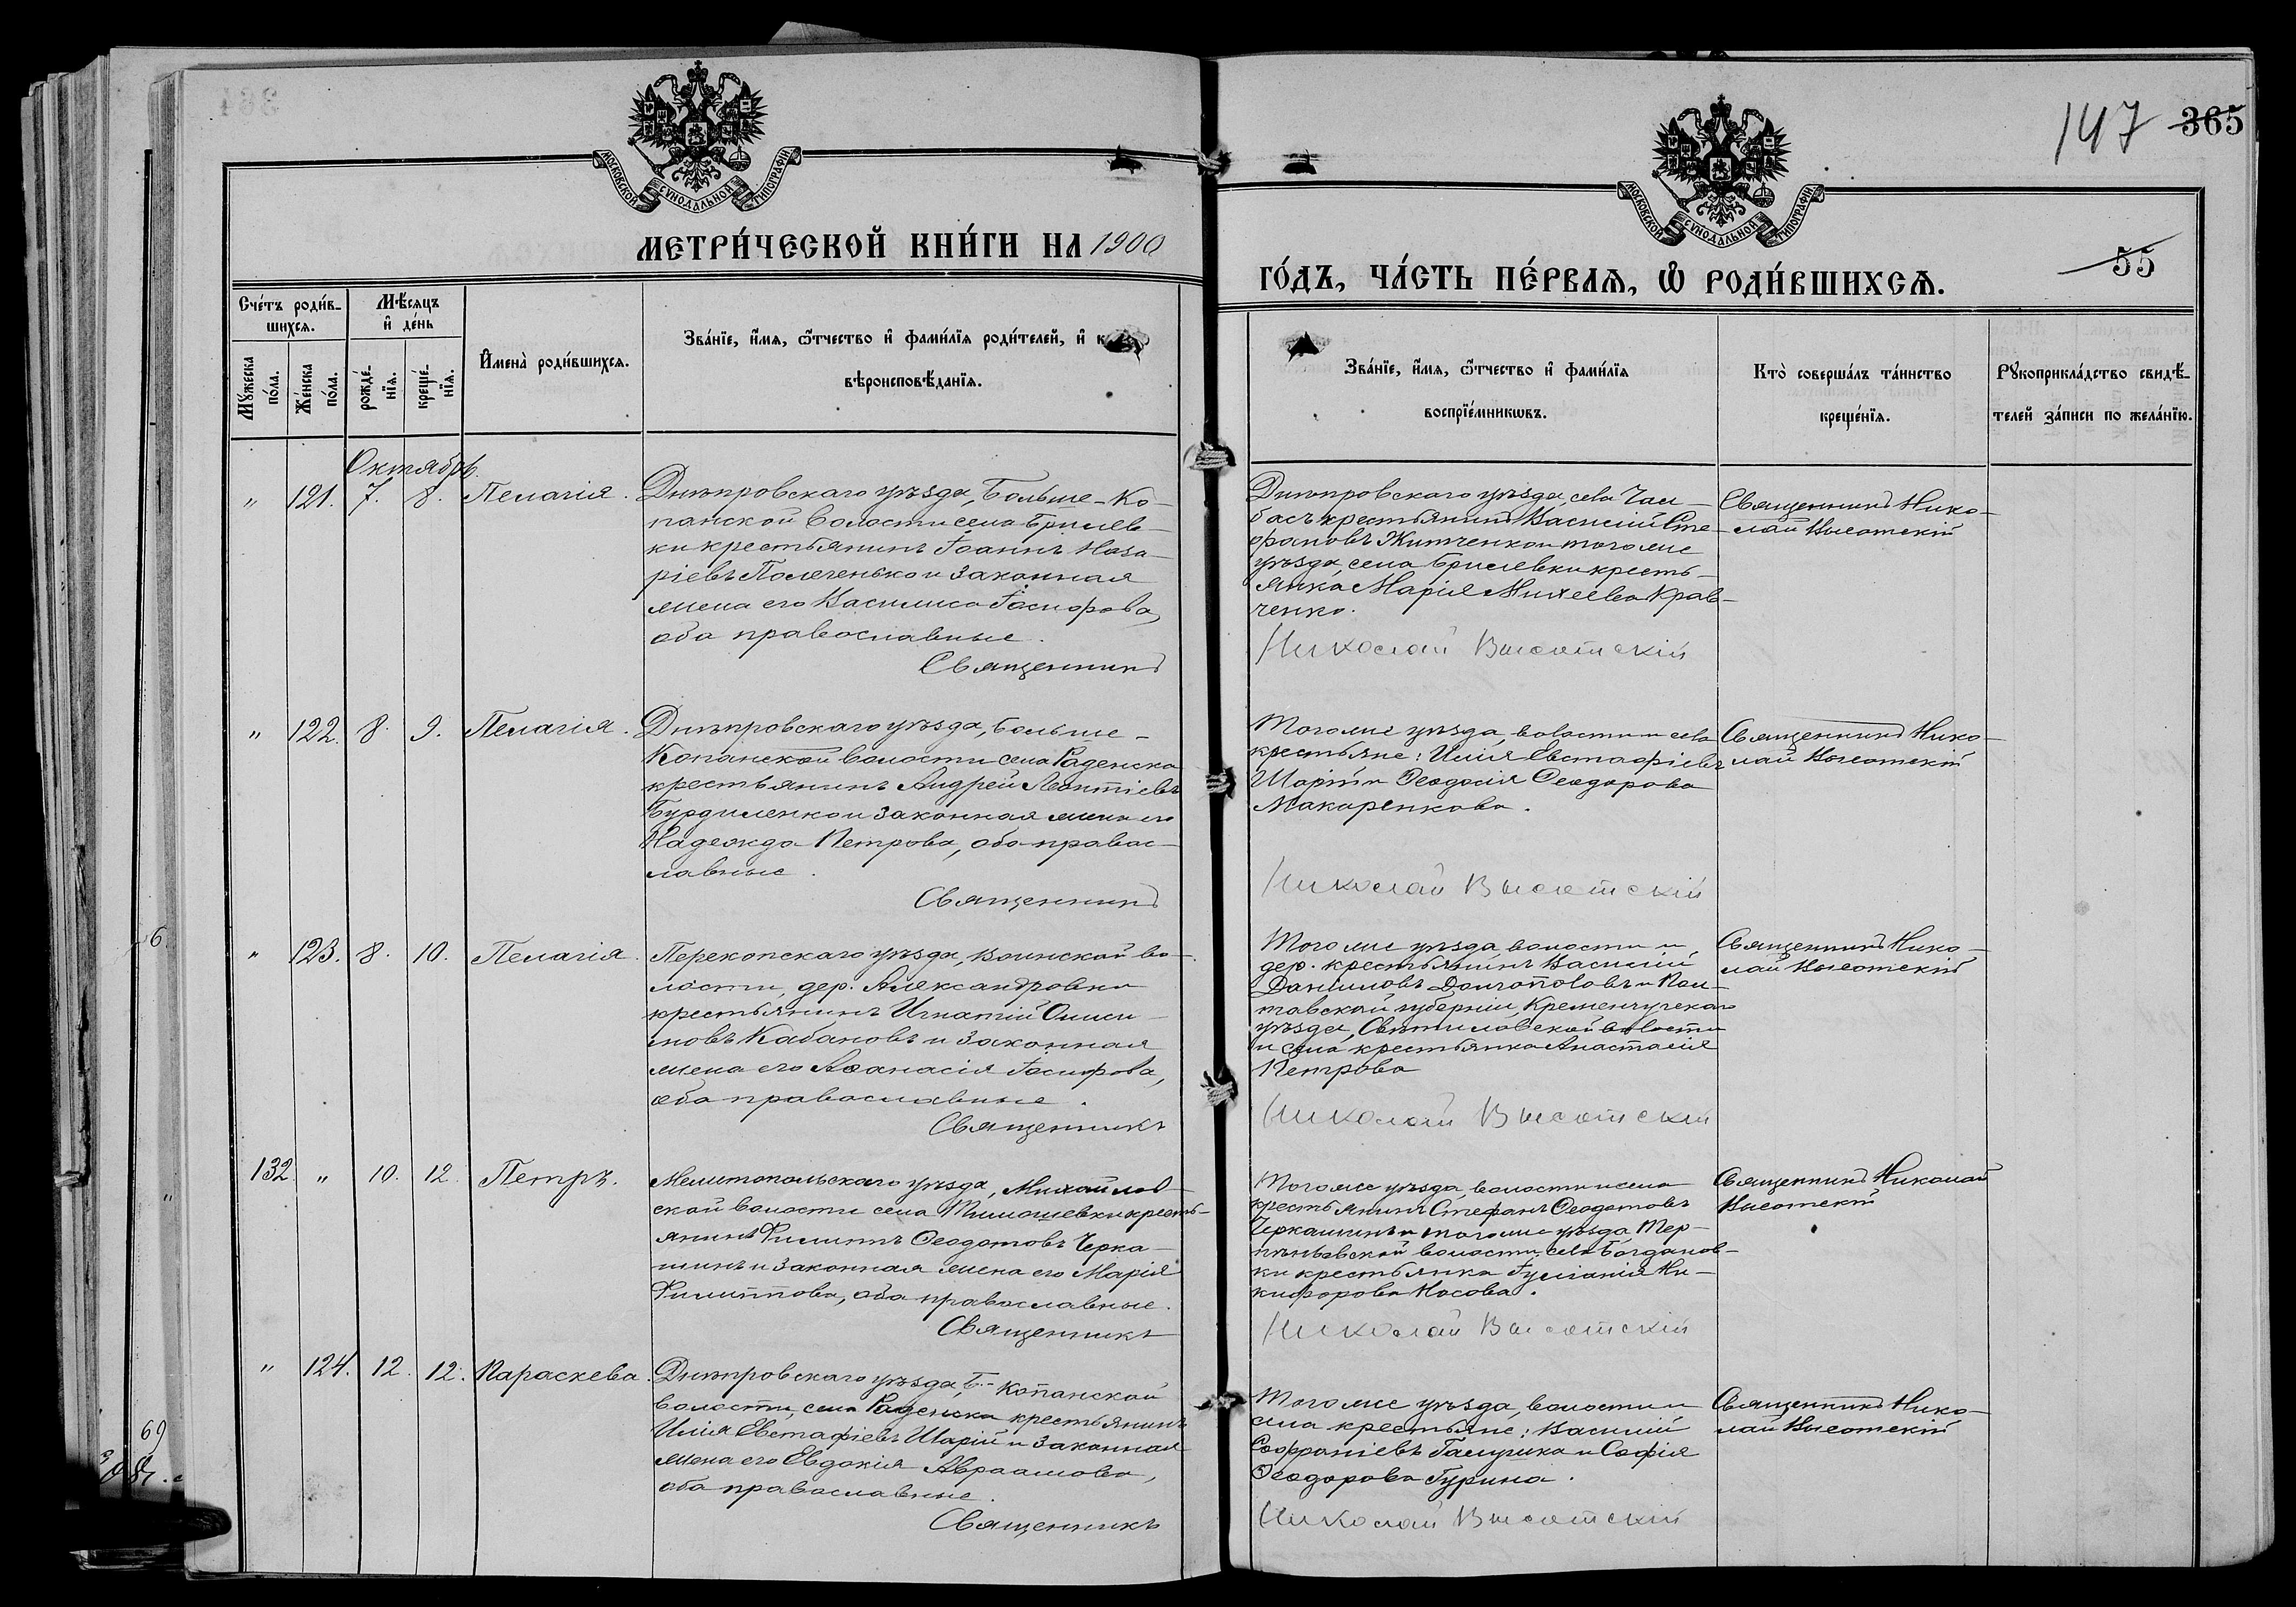 147 365
МОСКОВСКОЙ СѴНОДАЛЬНОЙ ТИПОГРАФІИ
МОСКОВСКОЙ СѴНОДАЛЬНОЙ ТИПОГРАФІИ
МЕТРИ́ЧЕСКОЙ КНИ́ГИ НА 1900
ГО́ДЪ, ЧА́СТЬ ПЕ́РВАѦ, Ѽ РОДИ́ВШИХСѦ.
55
Сче́тъ роди́в-
шихсѧ.
Мꙋжеска
по́ла.
Же́нска
по́ла.
Мѣ́сѧцъ
и҆ де́нь
рожде́-
нїѧ.
креще́-
нїѧ.
И҆мена̀ роди́вшихсѧ.
Зва́нїе, и҆́мѧ, ѻ҆́тчество и҆ фами́лїѧ роди́телей, и҆ к
вѣроисповѣ́данїѧ.
Зва́нїе, и҆́мѧ, ѻ҆́тчество и҆ фами́лїѧ
воспрїе́мникѡвъ.
Кто̀ соверша́лъ та́инство
креще́нїѧ.
Рꙋкоприкла́дство свидѣ́-
телей за́писи по жела́нїю.
Октябрь.
" 121. 7. 8. Пелагія.
Днѣпровскаго уѣзда, Больше-Ко-
панской волости села Брилев-
ки крестьянинъ Іоаннъ Наза-
ріевъ и законная
жена его Василиса Іосифова,
оба православные.
Священникъ
Днѣпровскаго уѣзда, села Чал-
басъ крестьянинъ Василій Сте-
фановъ Житченко и того же
уѣзда, села Брилевки кресть-
янка Марія Михеева Крав-
ченко.
Николай Высотскій
Священникъ Нико-
лай Высотскій
" 122. 8. 9. Пелагія.
Днѣпровскаго уѣзда, Больше-
Копанской волости села Раденска
крестьянинъ Андрей Леонтіевъ
и законная жена его
Надежда Петрова, оба правос-
лавные.
Священникъ
Того же уѣзда, волости и села
крестьяне: Илія Евстафіевъ
Шарій и Ѳеодосія Ѳеодорова
Макаренкова.
Николай Высотскій
Священникъ Нико-
лай Высотскій
" 123. 8. 10. Пелагія.
Перекопскаго уѣзда, Воинской во-
лости, дер. Александровки
крестьянинъ Игнатій Ониси-
мовъ Кабановъ и законная
жена его Аѳанасія Іосифова,
оба православные.
Священникъ
Того же уѣзда, волости и
дер. крестьянинъ Василій
Даниловъ Долгополовъ и Пол-
тавской губерніи, Кременчугскаго
уѣзда, волости
и села крестьянка Анастасія
Петрова
Николай Высотскій
Священникъ Нико-
лай Высотскій
132 " 10. 12. Петръ.
Мелитопольскаго уѣзда, Михайлов-
ской волости села Тимошевки кресть-
янинъ Филиппъ Ѳеодотовъ Черка-
шинъ и законная жена его Марія
Филиппова, оба православные.
Священникъ
Того же уѣзда, волости и села
крестьянинъ Стефанъ Ѳеодотовъ
Черкашинъ и того же уѣзда Тер-
пѣньевской волости, села Богданов-
ки крестьянка Іуліанія Ни-
кифорова Носова.
Николай Высотскій
Священникъ Николай
Высотскій
" 124. 12. 12. Параскева.
Днѣпровскаго уѣзда, Б.-Копанской
волости, села Раденска крестьянинъ
Илія Евстафіевъ Шарій и законная
жена его Евдокія Авраамова,
оба православные.
Священникъ
Того же уѣзда, волости и
села крестьяне: Василій
Софроніевъ Галушка и Софія
Ѳеодорова Гурина.
Николай Высотскій
Священникъ Нико-
лай Высотскій
6
69